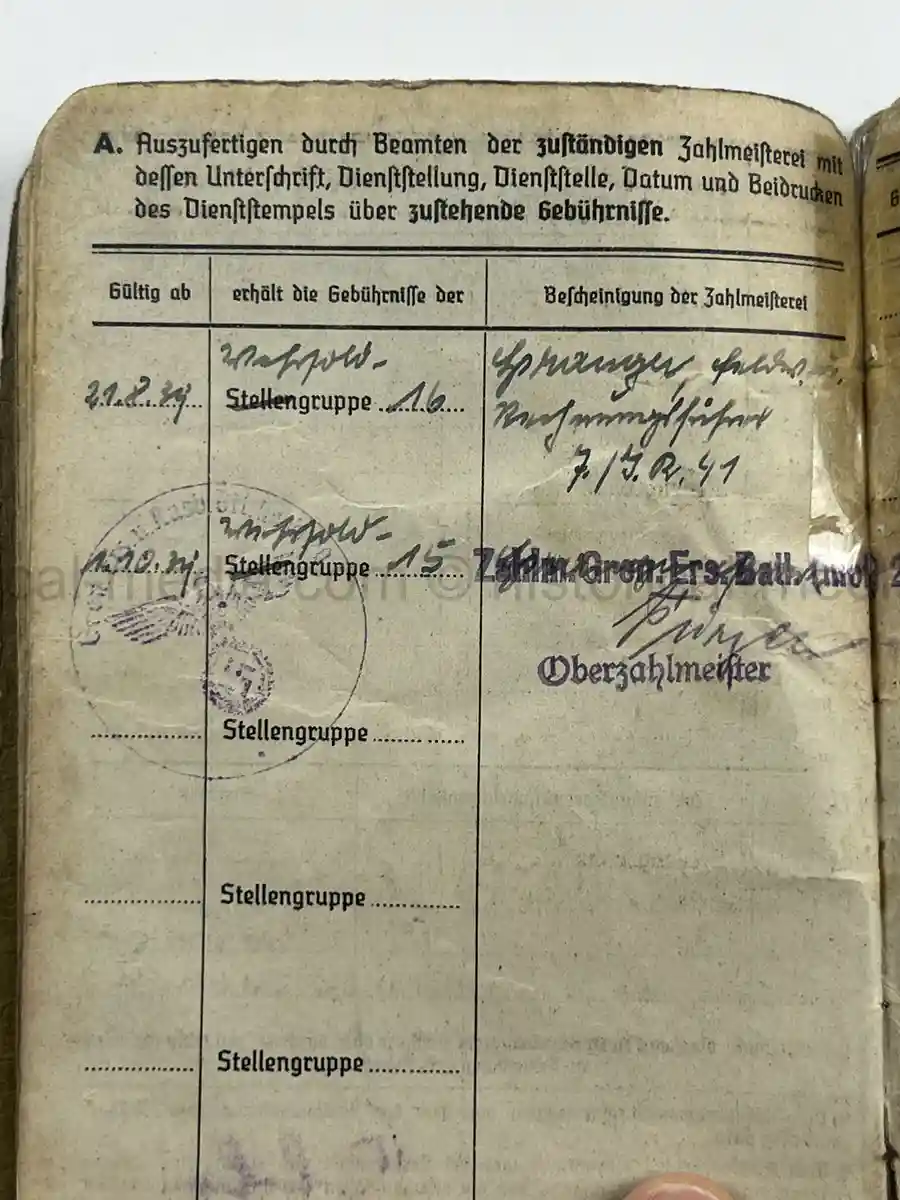 A. Auszufertigen durch Beamten der zuständigen Zahlmeisterei mit
dessen Unterschrift, Dienststellung, Dienststelle, Datum und Beidrucken
des Dienststempels über zustehende Gebührnisse.
Gültig ab
erhält die Gebührnisse der
Bescheinigung der Zahlmeisterei
Wehrsold-
21.8.39
Stellengruppe 16
Feldw. u.
Rechnungsführer
7./I.R. 41
Wehrsold-
1.10.39
Stellengruppe 15
Zahlm. Gren. Ers. Batl. (mot)
Oberzahlmeister
Stellengruppe
Stellengruppe
Stellengruppe